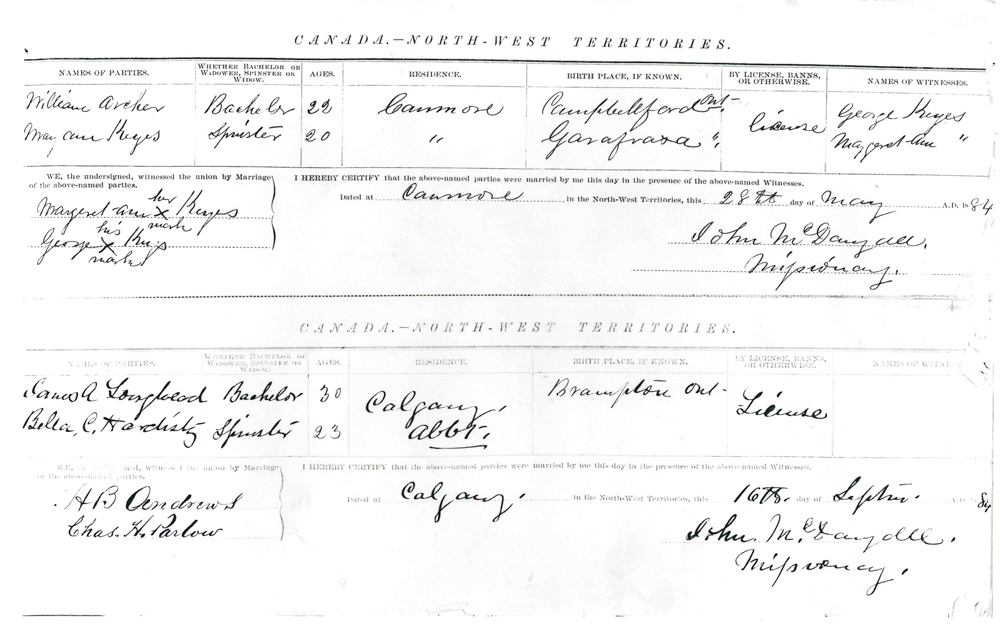 CANADA.—NORTH-WEST TERRITORIES.
NAMES OF PARTIES. WHETHER BACHELOR OR WIDOWER, SPINSTER OR WIDOW. AGES. RESIDENCE. BIRTH PLACE, IF KNOWN. BY LICENSE, BANNS, OR OTHERWISE. NAMES OF WITNESSES.
William Archer Bachelor 22 Canmore Campbellford Ont. License George Keyes
May Ann Keyes Spinster 20 " Garafraxa " Maggeret Ann "
WE, the undersigned, witnessed the union by Marriage
of the above-named parties.
I HEREBY CERTIFY that the above-named parties were married by me this day in the presence of the above-named Witnesses.
Margeret Ann her X mark Keyes
George his X mark Keys
Dated at Canmore in the North-West Territories, this 28th day of May A.D. 1884
John McDougall.
Missionary.
CANADA.—NORTH-WEST TERRITORIES.
NAMES OF PARTIES. WHETHER BACHELOR OR WIDOWER, SPINSTER OR WIDOW. AGES. RESIDENCE. BIRTH PLACE, IF KNOWN. BY LICENSE, BANNS, OR OTHERWISE. NAMES OF
James A Lougheed Bachelor 30 Calgary. Brampton Ont- License
Bella. C. Hardisty Spinster 23 Abbt.
WE, the undersigned, witnessed the union by Marriage
of the above-named parties.
I HEREBY CERTIFY that the above-named parties were married by me this day in the presence of the above-named Witnesses.
H B Andrews
Chas. H. Parlow
Dated at Calgary. in the North-West Territories, this 16th. day of Septbr. A.D. 84
John. McDougall.
Missionary.